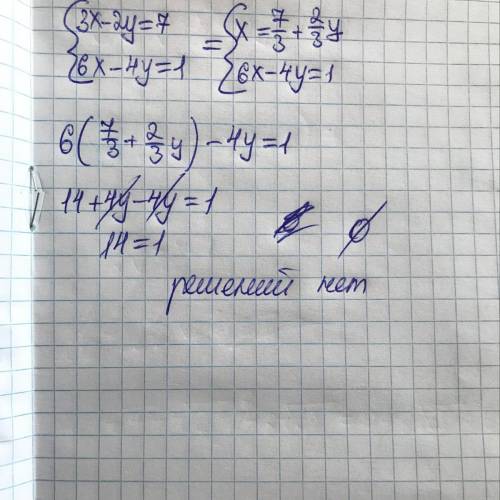 {3x-2y=7 = {x=7/3+2/3y
{6x-4y=1 {6x-4y=1
6(7/3+2/3y)-4y=1
14+4y-4y=1
14=1 ∅
решений нет